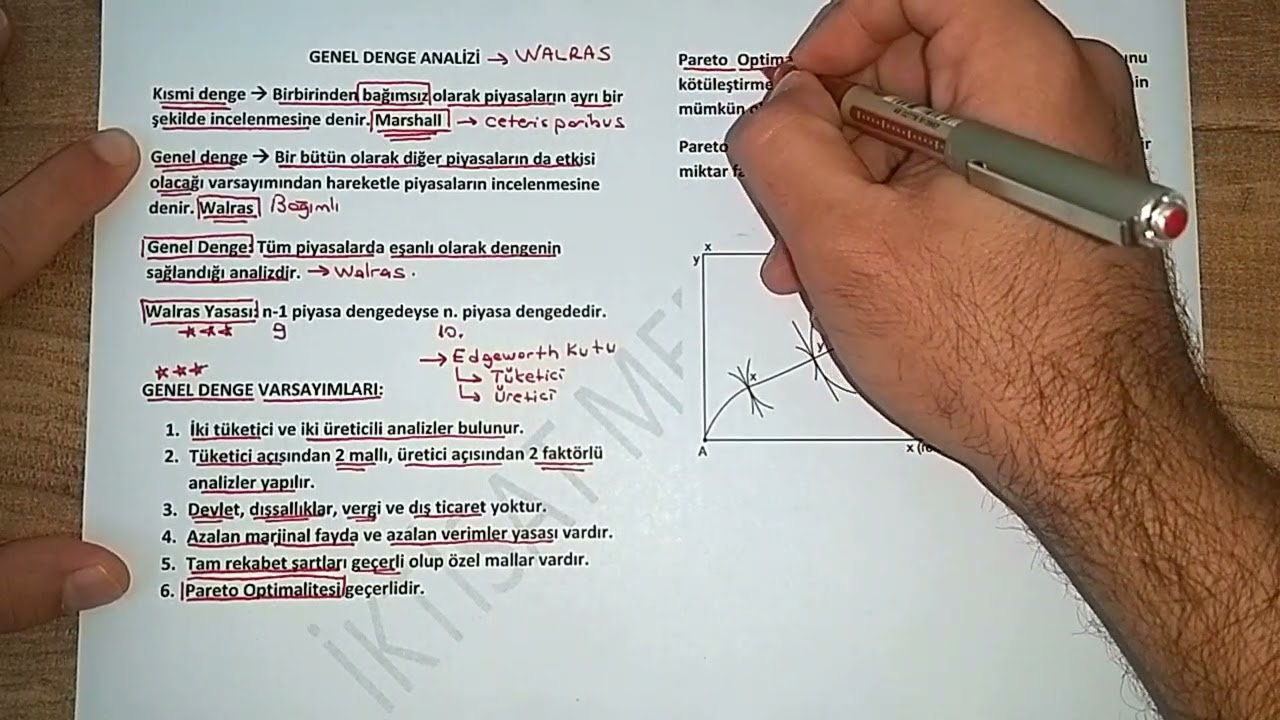 GENEL DENGE ANALİZİ → WALRAS
Kısmi denge → Birbirinden bağımsız olarak piyasaların ayrı bir
şekilde incelenmesine denir. Marshall → ceteris paribus
Genel denge → Bir bütün olarak diğer piyasaların da etkisi
olacağı varsayımından hareketle piyasaların incelenmesine
denir. Walras Bağımlı
Genel Denge: Tüm piyasalarda eşanlı olarak dengenin
sağlandığı analizdir. → Walras.
Walras Yasası: n-1 piyasa dengedeyse n. piyasa dengededir.
*** 9 10.
→ Edgeworth Kutu
↳ Tüketici
↳ Üretici
***
GENEL DENGE VARSAYIMLARI:
1. İki tüketici ve iki üreticili analizler bulunur.
2. Tüketici açısından 2 mallı, üretici açısından 2 faktörlü
analizler yapılır.
3. Devlet, dışsallıklar, vergi ve dış ticaret yoktur.
4. Azalan marjinal fayda ve azalan verimler yasası vardır.
5. Tam rekabet şartları geçerli olup özel mallar vardır.
6. Pareto Optimalitesi geçerlidir.
Pareto
kötüleştirme
mümkün
Pareto
miktar
x
y
x
y
A
x
İKTİSAT